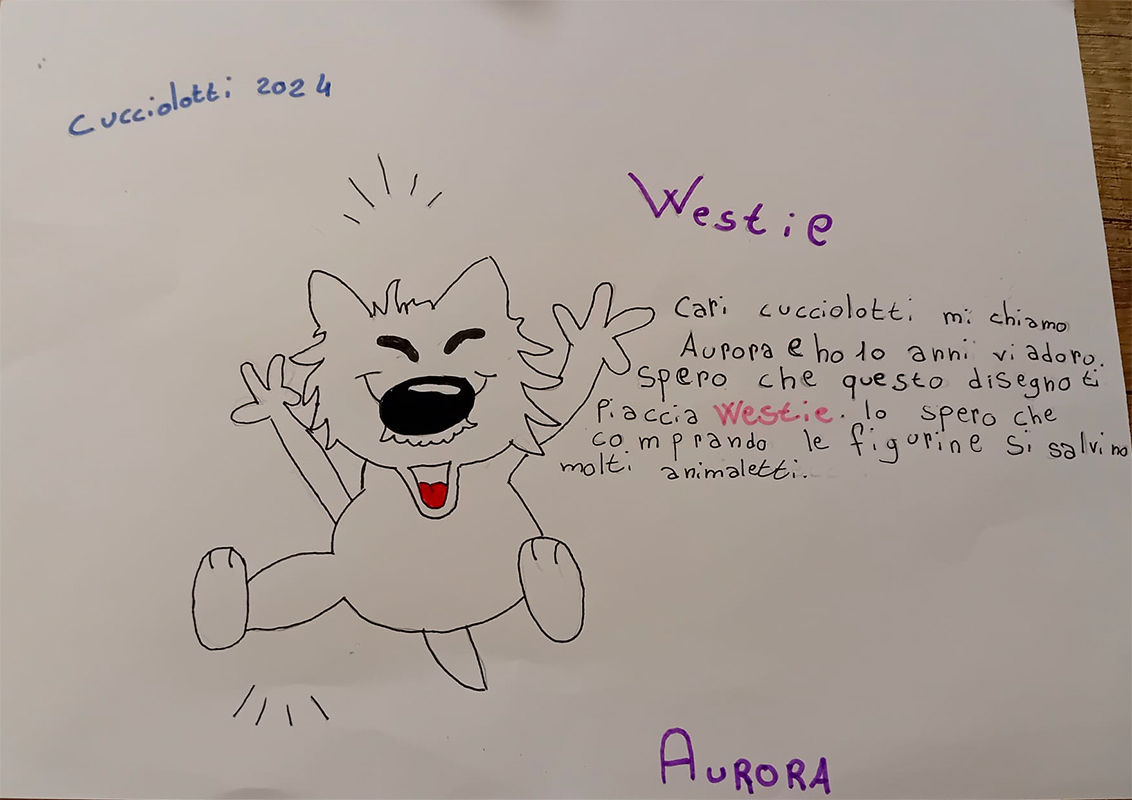 Cucciolotti 2024
Westie
Cari cucciolotti mi chiamo
Aurora e ho 10 anni vi adoro.
Spero che questo disegno ti
Piaccia Westie. Io spero che
comprando le figurine si salvino
molti animaletti.
AURORA